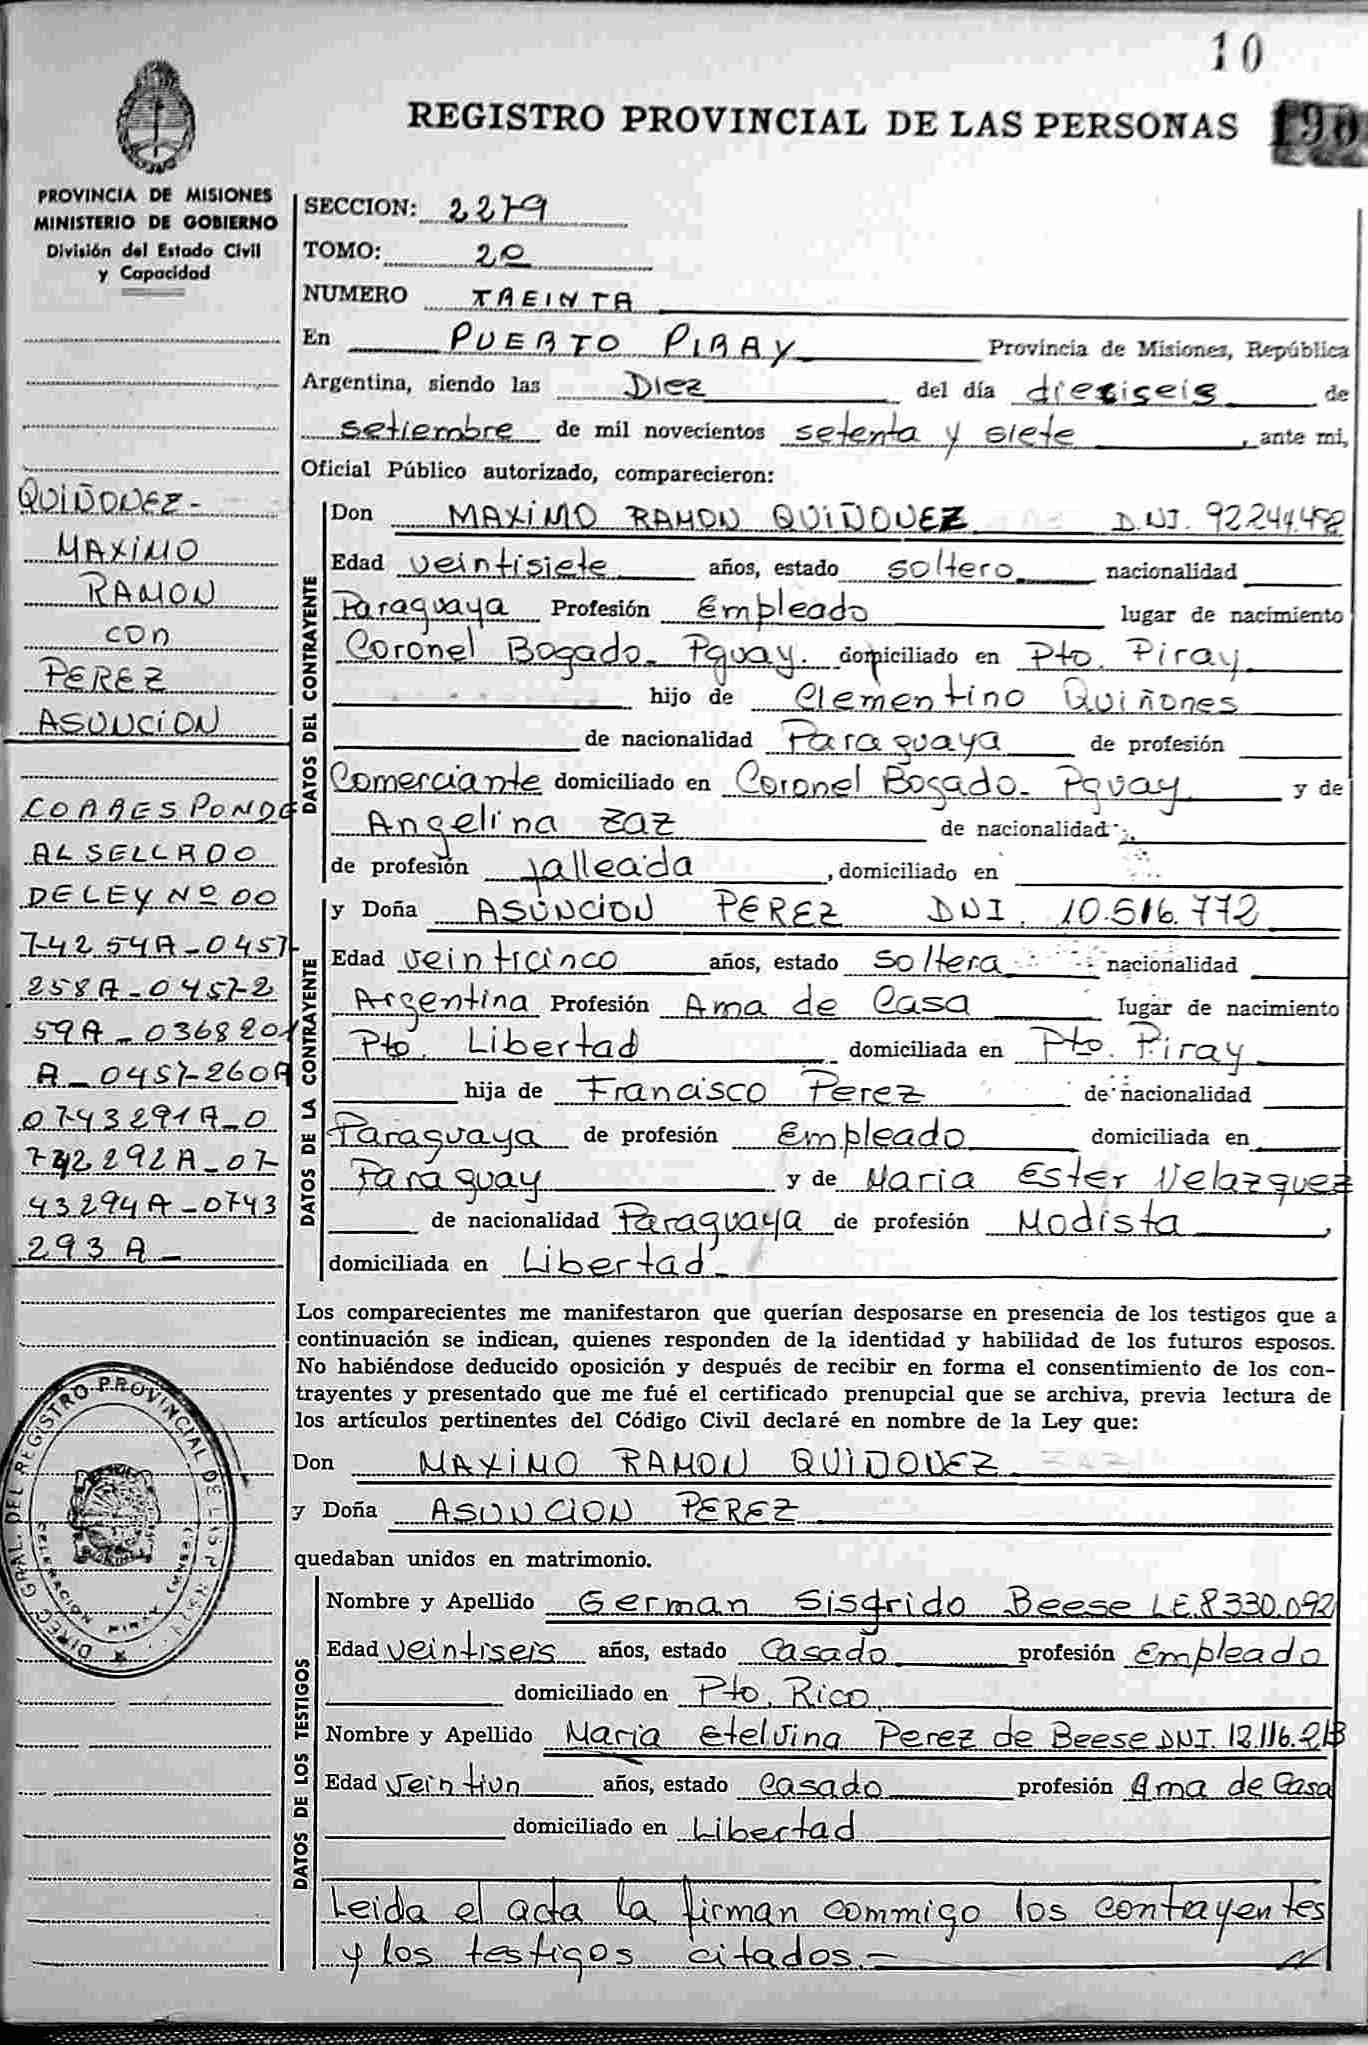 10
REGISTRO PROVINCIAL DE LAS PERSONAS
PROVINCIA DE MISIONES
MINISTERIO DE GOBIERNO
División del Estado Civil
y Capacidad
QUIÑONEZ-
MAXIMO
RAMON
con
PEREZ
ASUNCION
CORRESPONDE
AL SELLADO
DE LEY Nº 00
74254A-0457
258A-04572
59A-0368201
A-0457260A
0743291A-0
742292A-07
43294A-0743
293A-
SECCION: 2279
TOMO: 20
NUMERO TREINTA
En PUERTO PIRAY Provincia de Misiones, República
Argentina, siendo las Diez del día dieciseis de
setiembre de mil novecientos setenta y siete, ante mi,
Oficial Público autorizado, comparecieron:
DATOS DEL CONTRAYENTE
Don MAXIMO RAMON QUIÑONEZ D.NI. 92.244.498
Edad veintisiete años, estado soltero nacionalidad
Paraguaya Profesión Empleado lugar de nacimiento
Coronel Bogado- Pguay. domiciliado en Pto. Piray
hijo de Clementino Quiñones
de nacionalidad Paraguaya de profesión
Comerciante domiciliado en Coronel Bogado- Pguay y de
Angelina Zaz de nacionalidad
de profesión falleada, domiciliado en
DATOS DE LA CONTRAYENTE
y Doña ASUNCION PEREZ DNI. 10.516.772
Edad veinticinco años, estado soltera nacionalidad
Argentina Profesión Ama de Casa lugar de nacimiento
Pto. Libertad domiciliada en Pto. Piray
hija de Francisco Perez de nacionalidad
Paraguaya de profesión Empleado domiciliada en
Paraguay y de Maria Ester Velazquez
de nacionalidad Paraguaya de profesión Modista,
domiciliada en Libertad
Los comparecientes me manifestaron que querían desposarse en presencia de los testigos que a
continuación se indican, quienes responden de la identidad y habilidad de los futuros esposos.
No habiéndose deducido oposición y después de recibir en forma el consentimiento de los con-
trayentes y presentado que me fué el certificado prenupcial que se archiva, previa lectura de
los artículos pertinentes del Código Civil declaré en nombre de la Ley que:
Don MAXIMO RAMON QUIÑONEZ
y Doña ASUNCION PEREZ
quedaban unidos en matrimonio.
DATOS DE LOS TESTIGOS
Nombre y Apellido German Sisfrido Beese LE.8330.092
Edad veintiseis años, estado Casado profesión Empleado
domiciliado en Pto. Rico
Nombre y Apellido Maria Etelvina Perez de Beese DNI. 12.116.213
Edad veintiun años, estado casado profesión Ama de Casa
domiciliado en Libertad
Leida el acta la firman commigo los contrayentes
y los testigos citados.-
DIREC. GRAL. DEL REGISTRO PROVINCIAL DE LAS